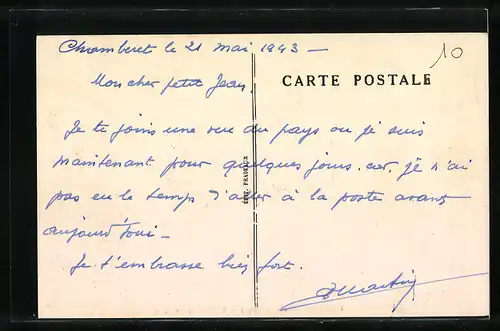 Chamberet le 21 mai 1943 —
10
Mon cher petit Jean,
CARTE POSTALE
Je te joins une vue du pays ou je suis
maintenant pour quelques jours. car, je n'ai
pas eu le temps d'aller à la poste avant
aujourd'hui —
Je t'embrasse bien fort.
DMartin